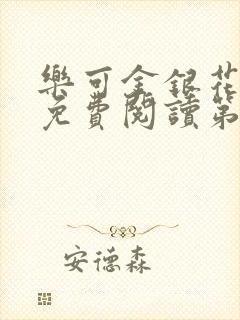 樂可金銀花
免費閱讀第
安德森